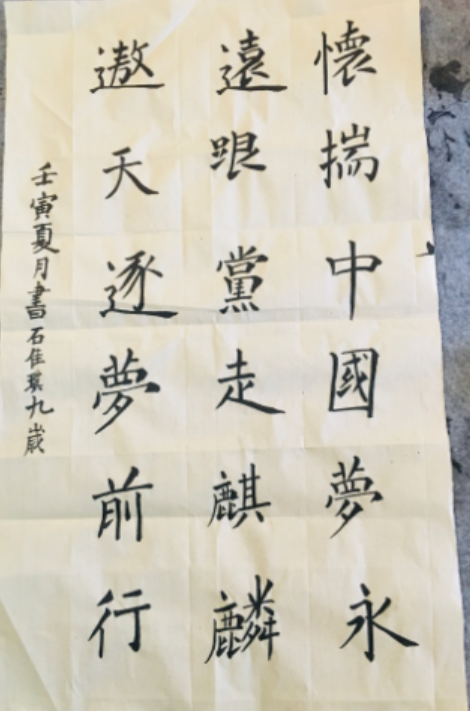 懷揣中國夢永
遠跟黨走麒麟
遨天逐夢前行
壬寅夏月書石隹琪九歲